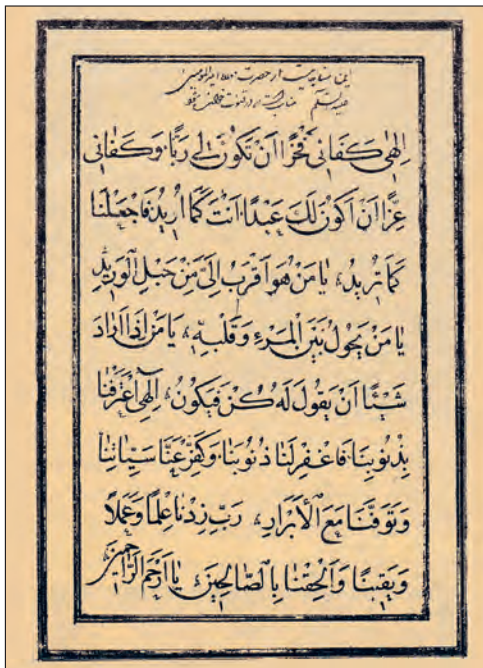 این مناجاتیست از حضرت امیرالمومنین
علیه السلم مناسب است در قنوت خواندن
اِلٰهِي كَفَانِي فَخْرًا اَنْ تَكُونَ لِي رَبًّا وَكَفَانِي
عِزًّا اَنْ اَكُونَ لَكَ عَبْدًا اَنْتَ كَمَا اُرِيدُ فَاجْعَلْنَا
كَمَا تُرِيدُ، يَا مَنْ هُوَ اَقْرَبُ اِلَيَّ مِنْ حَبْلِ الْوَرِيدِ
يَا مَنْ يَحُولُ بَيْنَ الْمَرْءِ وَقَلْبِهِ، يَا مَنْ اِذَا اَرَادَ
شَيْئًا اَنْ يَقُولَ لَهُ كُنْ فَيَكُونُ، اِلٰهِي اعْتَرَفْنَا
بِذُنُوبِنَا فَاغْفِرْ لَنَا ذُنُوبَنَا وَكَفِّرْ عَنَّا سَيِّاٰتِنَا
وَتَوَفَّنَا مَعَ الْاَبْرَارِ، رَبِّ زِدْنَا عِلْمًا وَعَمَلًا
وَيَقِينًا وَاَلْحِقْنَا بِالصَّالِحِينَ يَا اَرْحَمَ الرَّاحِمِينَ